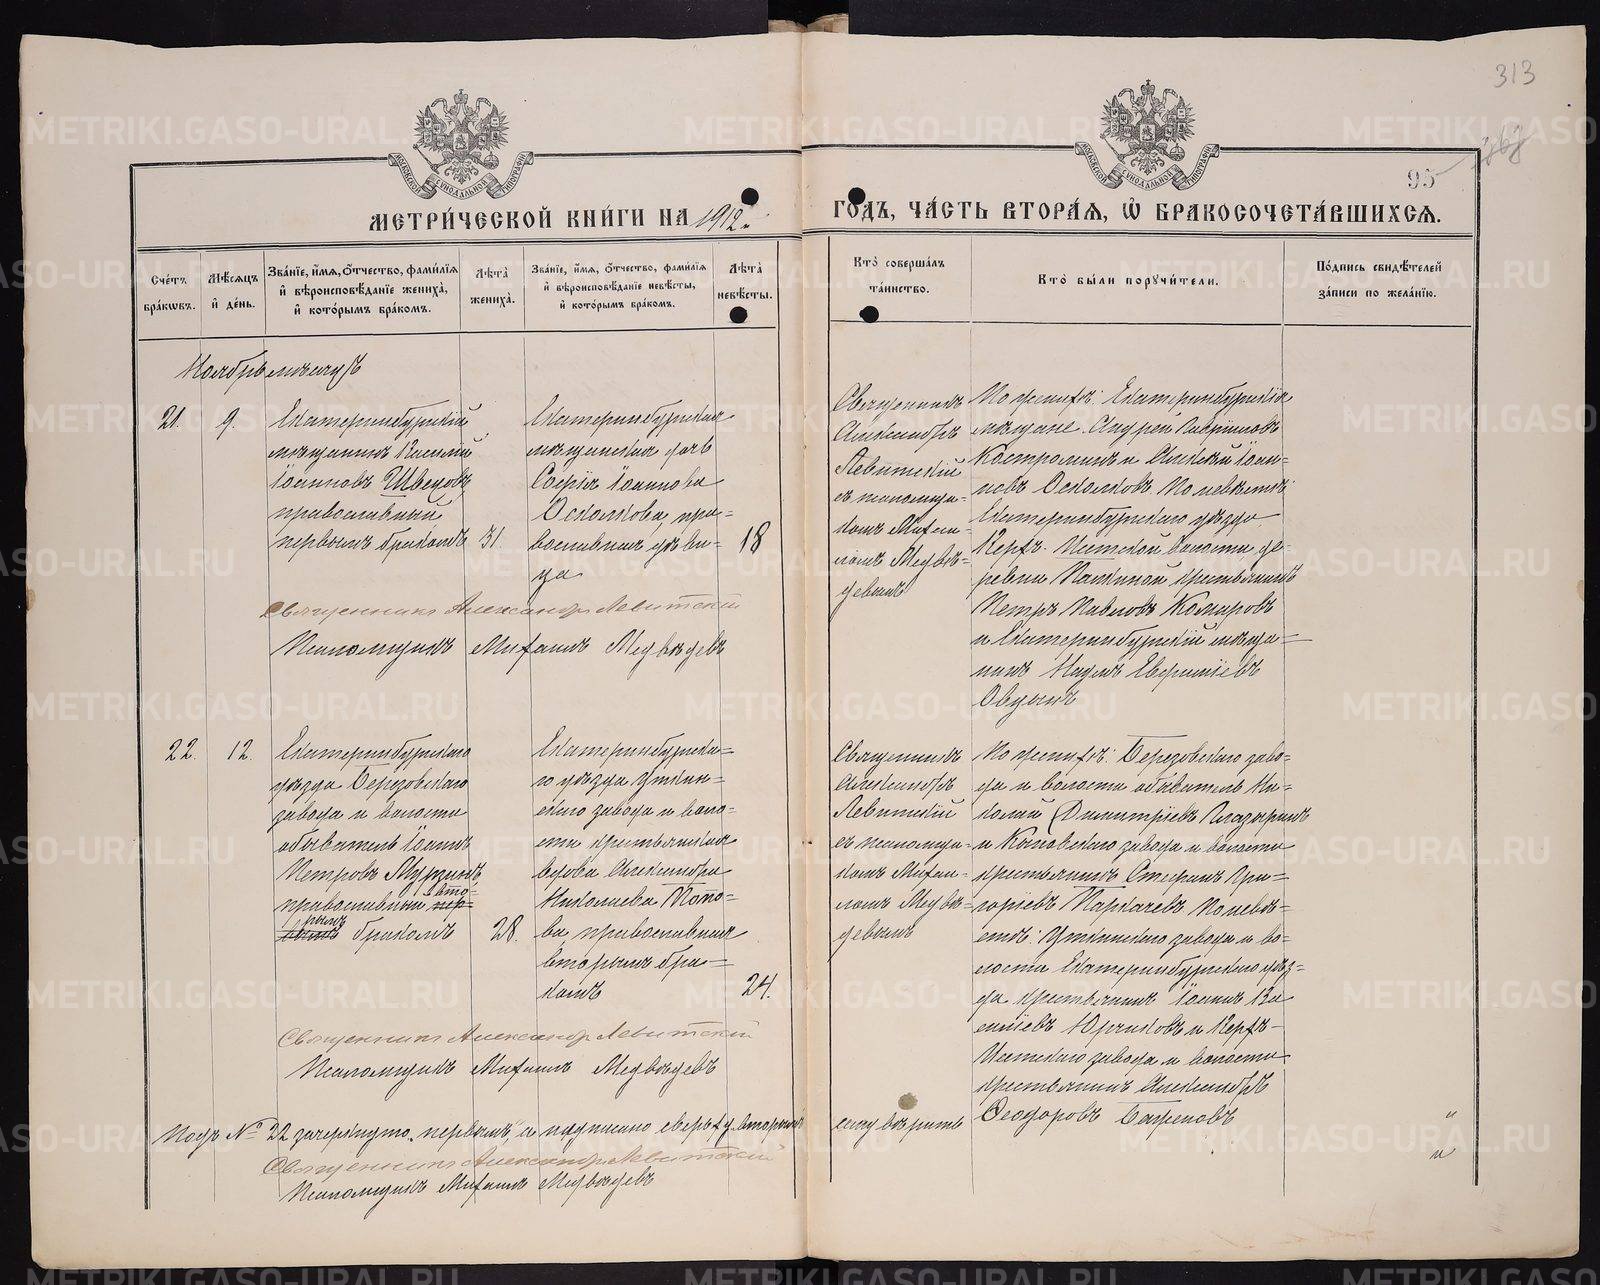 313
95
МОСКОВСКОЙ СѴНОДАЛЬНОЙ ТИПОГРАФІИ
МОСКОВСКОЙ СѴНОДАЛЬНОЙ ТИПОГРАФІИ
МЕТРИ́ЧЕСКОЙ КНИ́ГИ НА 1912 й ГОДЪ, ЧА́СТЬ ВТОРА́Я, Ѽ БРАКОСОЧЕТА́ВШИХСЯ.
Сче́тъ бра́кѡвъ.
Мѣ́сяцъ и҆ де́нь.
Зва́нїе, и҆́мя, ѻ҆́тчество, фамилїя и҆ вѣроисповѣ́данїе жениха̀, и҆ кото́рымъ бра́комъ.
Лѣта̀ жениха̀.
Зва́нїе, и҆́мя, ѻ҆́тчество, фамилїя и҆ вѣроисповѣ́данїе невѣ́сты, и҆ кото́рымъ бра́комъ.
Лѣта̀ невѣ́сты.
Кто̀ соверша́лъ та́инство.
Кто̀ бы́ли порꙋчи́тели.
По́дпись свидѣ́телей за́писи по жела́нїю.
Ноябрь мѣсяцъ
21.
9.
Екатеринбургскій
мѣщанинъ Василій
Іоанновъ Швецовъ
православный
первымъ бракомъ
31.
Екатеринбургская
мѣщанская дочь
Софія Іоаннова
Осколкова, пра=
вославная дѣви=
ца
18
Священникъ
Александръ
Левитскій
съ псаломщи=
комъ Михаи=
ломъ Медвѣ=
девымъ
По женихѣ: Екатеринбургскіе
мѣщане Андрей Гавріиловъ
Костроминъ и Алексѣй Іоан=
новъ Осколковъ. По невѣстѣ:
Екатеринбургскаго уѣзда
Верхъ-Исетской волости де=
ревни Палкиной крестьянинъ
Петръ Павловъ Комаровъ
и Екатеринбургскій мѣща=
нинъ Наумъ Евфиміевъ
Священникъ Александр Левитский
Псаломщикъ Михаилъ Медвѣдевъ
22.
12.
Екатеринбургскаго
уѣзда Березовскаго
завода и волости
обыватель Іоаннъ
Петровъ Мурзинъ
православный пер=
вто=
вымъ бракомъ
рымъ
28.
Екатеринбургска=
го уѣзда Уткин=
скаго завода и воло=
сти крестьянская
вдова Александра
Николаева Пото=
ва, православная
вторымъ бра=
комъ
24.
Священникъ
Александръ
Левитскій
съ псаломщи=
комъ Михаи=
ломъ Медвѣ=
девымъ
По женихѣ: Березовскаго заво=
да и волости обыватель Ни=
колай Димитріевъ
и завода и волости
крестьянинъ Стефанъ Гри=
горіевъ По невѣ=
стѣ: Уткинскаго завода и во=
лости Екатеринбургскаго уѣз=
да крестьянинъ Іоаннъ Ва
силіевъ и Верхъ-
Исетскаго завода и волости
крестьянинъ Александръ
Ѳеодоровъ
Священникъ Александр Левитский
Псаломщикъ Михаилъ Медвѣдевъ
Подъ № 22 зачеркнуто „первымъ“, а надписано сверху „вторымъ“
сему вѣрить
Священникъ Александр Левитский
Псаломщикъ Михаилъ Медвѣдевъ
METRIKI.GASO-URAL.RU